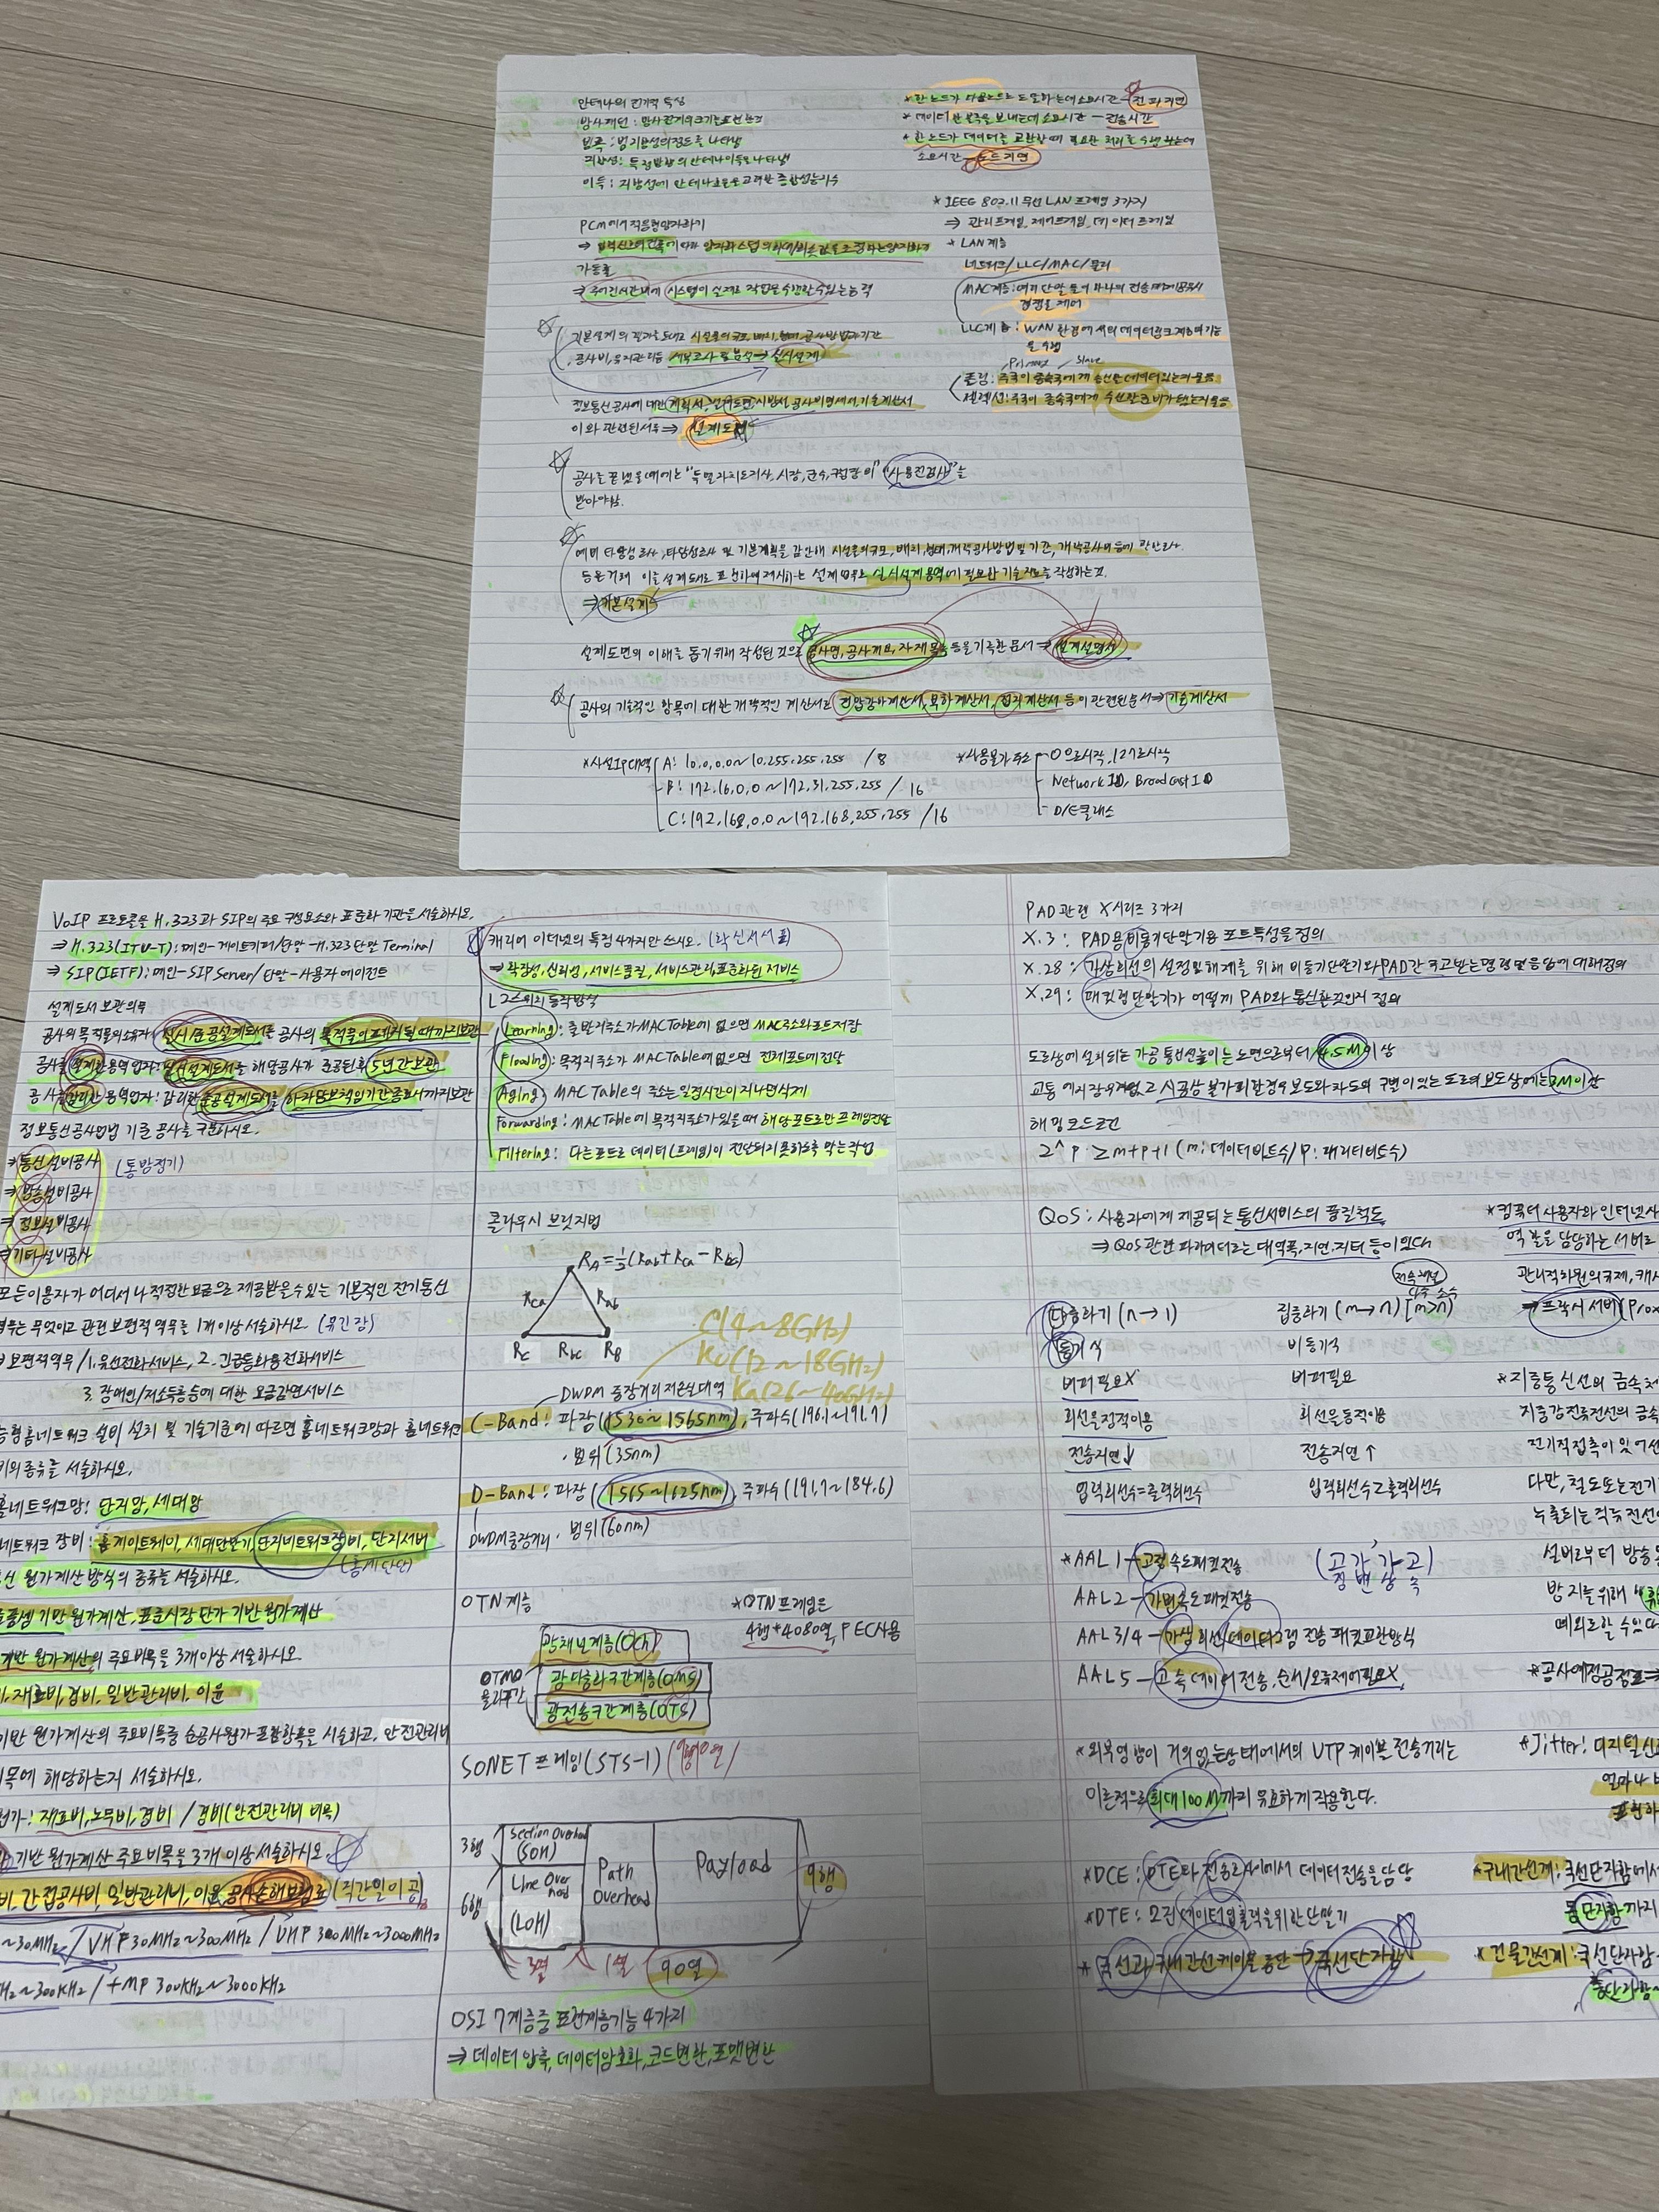 안테나의 전기적 특성
방사패턴: 방사전계의 크기를 표현한것
빔폭: 빔 기향성의 정도를 나타냄
지향성: 특정방향의 안테나이득을 나타냄
이득: 지향성에 안테나효율을 고려한 종합성능지수
PCM에서 적응형양자화기
⇒ 입력신호의 진폭에 따라 양자화스텝의
가동률
⇒ 주어진시간내에 시스템이 실제로 작업을수행할수있는능력
기본설계의 결과를토대로 시설물의규모, 배치, 형태, 공사방법과기간
, 공사비, 유지관리등 세부조사 및 분석 ⇒ 실시설계
정보통신공사에 대한 계획서, 설계도면, 시방서, 공사비명세서, 기술계산서
이와 관련된서류 ⇒ 설계도서
공사를 끝냈을때에는 "특별자치도지사, 시장, 군수, 구청장이" "사용전검사"를
받아야함.
예비 타당성조사, 타당성조사 및 기본계획을 감안해 시설물의규모, 배치, 형태, 개략공사방법및 기간, 개략공사비등에 관한조사
등을거쳐 이를 설계도서로 표현하여제시하는 설계업무로 실시설계용역에 필요한 기술자료를작성하는것.
⇒ 기본설계
설계도면의 이해를 돕기위해 작성된것으로 공사명, 공사개요, 자재목록 등을기록한 문서 ⇒ 설계설명서
공사의 기술적인 항목에 대한 개략적인 계산서로 전압강하계산서, 부하계산서, 접지계산서 등이 관련된문서 ⇒ 기술계산서
*사설IP대역 A: 10.0.0.0~10.255.255.255 /8
B: 172.16.0.0~172.31.255.255 / 16
C: 192.168.0.0~192.168.255.255 /16
* 한 노드가 다음노드로 도달하는데 소요시간 - 전파지연
* 데이터 한 블록을 보내는데 소요시간 - 전송시간
* 한 노드가 데이터를 교환할때 필요한 처리를 수행하는데
소요시간 - 노드지연
* IEEE 802.11 무선 LAN 프레임 3가지
⇒ 관리프레임, 제어프레임, 데이터프레임
* LAN계층
네트워크/LLC/MAC/물리
MAC계층: 여러 단말들이 하나의 전송매체공유시
경쟁을 제어
LLC계층: WAN 환경에서의 데이터링크계층의 기능
을 수행
Primary / Slave
폴링: 주국이 종속국에게 송신할데이터있는지물음
셀렉션: 주국이 종속국에게 수신할준비가됐는지물음
*사용불가주소 - 0으로시작, 127로시작
- Network ID, Broadcast ID
- D/E클래스
VoIP 프로토콜을 H.323과 SIP의 주요 구성요소와 표준화 기관을 서술하시오.
⇒ H.323(ITU-T): 메인-게이트키퍼/단말-H.323단말 Terminal
⇒ SIP(IETF): 메인-SIP Server/단말-사용자에이전트
설계도서 보관의무
공사의 목적물의소유자: 실시/준공설계도서를 공사의 목적물이폐지될때까지보관
공사를 설계한용역업자: 실시설계도서를 해당공사가 준공된후 5년간보관
공사를 감리한 용역업자: 감리한 준공설계도서를 하자담보책임기간종료시까지보관
정보통신공사업법 기준 공사를 구분하시오.
⇒ 통신설비공사 (통방정기)
⇒ 방송설비공사
⇒ 정보설비공사
⇒ 기타설비공사
모든이용자가 어디서나 적절한 요금으로 제공받을수있는 기본적인 전기통신
역무는 무엇이고 관련보편적 역무를 1개이상 서술하시오. (유긴장)
보편적역무/1. 유선전화서비스, 2. 긴급통화용전화서비스
3. 장애인/저소득층등에 대한 요금감면서비스
능형홈네트워크 설비 설치 및 기술기준에 따르면 홈네트워크망과 홈네트워크
비의종류를 서술하시오.
홈네트워크망: 단지망, 세대망
네트워크 장비: 홈게이트웨이, 세대단말기, 단지네트워크장비, 단지서버
(홈세단단)
원가계산 방식의 종류를 서술하시오.
품셈 기반 원가계산, 표준시장 단가 기반 원가계산
기반 원가계산의 주요비목을 3개이상 서술하시오.
, 재료비, 경비, 일반관리비, 이윤
기반 원가계산의 주요비목중 순공사원가 포함항목을 서술하고, 안전관리비
비목에 해당하는지 서술하시오.
원가: 재료비, 노무비, 경비 / 경비(안전관리비 비목)
기반 원가계산 주요비목을 3개 이상 서술하시오.
비, 간접공사비, 일반관리비, 이윤, 공사손해보험료 (직간일이공)
~30MHz / VHF 30MHz~300MHz / UHF 300MHz~3000MHz
Hz~300KHz / *MF 300KHz~3000KHz
캐리어 이더넷의 특징 4가지만 쓰시오. (확신서서표)
⇒ 확장성, 신뢰성, 서비스품질, 서비스관리, 표준화된 서비스
L2스위치 동작방식
Learning: 출발지주소가 MAC Table에 없으면 MAC주소와포트저장
Flooding: 목적지주소가 MAC Table에 없으면 전체포트에전달
Aging: MAC Table의 주소는 일정시간이지나면삭제
Forwarding: MAC Table에 목적지주소가있을때 해당포트로만프레임전달
Filtering: 다른포트로 데이터(프레임)이 전달되지 못하도록 막는작업
콜라우시 브릿지법
RA = ½(Rab + Rca - Rbc)
Rca Rab
Rc Rbc RB
C(4~8GHz)
Ku(12~18GHz)
Ka(26~40GHz)
DWDM 중장거리 저손실대역
C-Band: 파장(1530~1565nm), 주파수(196.1~191.7)
, 범위(35nm)
D-Band: 파장(1565~1625nm), 주파수(191.7~184.6)
DWDM중장거리, 범위(60nm)
OTN계층
*OTN 프레임은
4행*4080열, FEC사용
광채널계층(OCh)
광다중화구간계층(OMS)
광전송구간계층(OTS)
SONET 프레임(STS-1) (9행90열)
3행 Section Overhead (SOH)
6행 Line Overhead (LOH)
Path Overhead
Payload
9행
3열 1열 90열
OSI 7계층중 표현계층기능 4가지
⇒ 데이터 압축, 데이터암호화, 코드변환, 포맷변환
PAD관련 X시리즈 3가지
X.3: PAD용비동기단말기용 포트특성을 정의
X.28: 가상회선의 설정및해제를 위해 비동기단말기와PAD간 주고받는명령및응답에 대해정의
X.29: 패킷형단말기가 어떻게 PAD와 통신할것인지 정의
도로상에 설치되는 가공통신선높이는 노면으로부터 4.5M이상
교통에지장우려없고 시공상 불가피할경우 보도와차도의 구별이있는도로의보도상에는 3M이상
해밍코드조건
2^p ≥ m+p+1 (m: 데이터비트수/P: 패리티비트수)
QoS: 사용자에게 제공되는 통신서비스의 품질척도
⇒ QoS관련 파라미터로는 대역폭, 지연, 지터 등이있다
다중화기 (n→1) 집중화기 (m→n) [m>n]
동기식 비동기식
버퍼필요X 버퍼필요
회선을정적이용 회선을동적이용
전송지연↓ 전송지연↑
입력회선수=출력회선수 입력회선수≥출력회선수
*AAL 1 - 고정속도패킷전송
AAL2 - 가변속도패킷전송
AAL 3/4 - 가상회선,데이터그램 전송 패킷교환방식
AAL5 - 고속데이터 전송, 순서/오류제어필요X
*외부영향이 거의없는상태에서의 UTP케이블 전송거리는
이론적으로최대100M까지 유효하게작용한다.
*DCE: DTE와 전송로사이에서 데이터전송을담당
*국선과 구내간선케이블 종단 → 국선단자함
*컴퓨터 사용자와 인터넷사
역할을 담당하는 서버로
⇒ 프록시서버(Prox
*지중통신선의 금속체
지중강전류전선의 금속
전기적접촉이 있어선
다만, 철도또는전기
누출되는 직류전선
설비로부터 방송통
방지를위해
예외로할수있다
*공사예정공정표⇒
*Jitter: 디지털신호
얼마나
표현하
*구내간선계: 국선단자함에서
동단자함까지
*건물간선계: 국선단자함